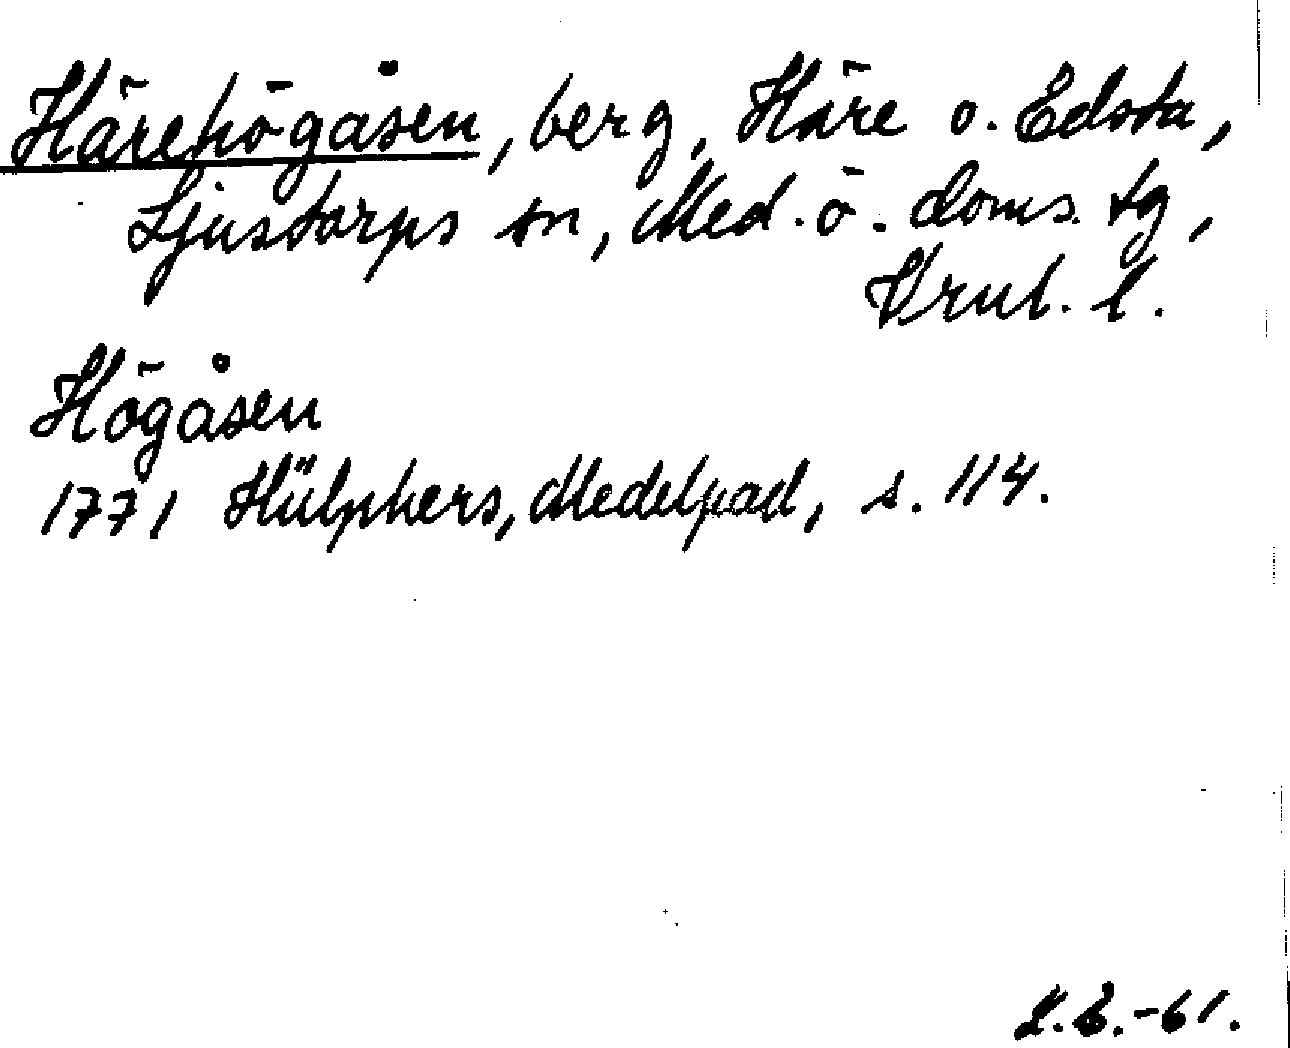 Härehögåsen, berg, Häre o. Edsta,
Ljustorps sn, Med. ö. doms. tg,
Vrnl. l.
Högåsen
1771 Hülphers, Medelpad, s. 114.
-61.